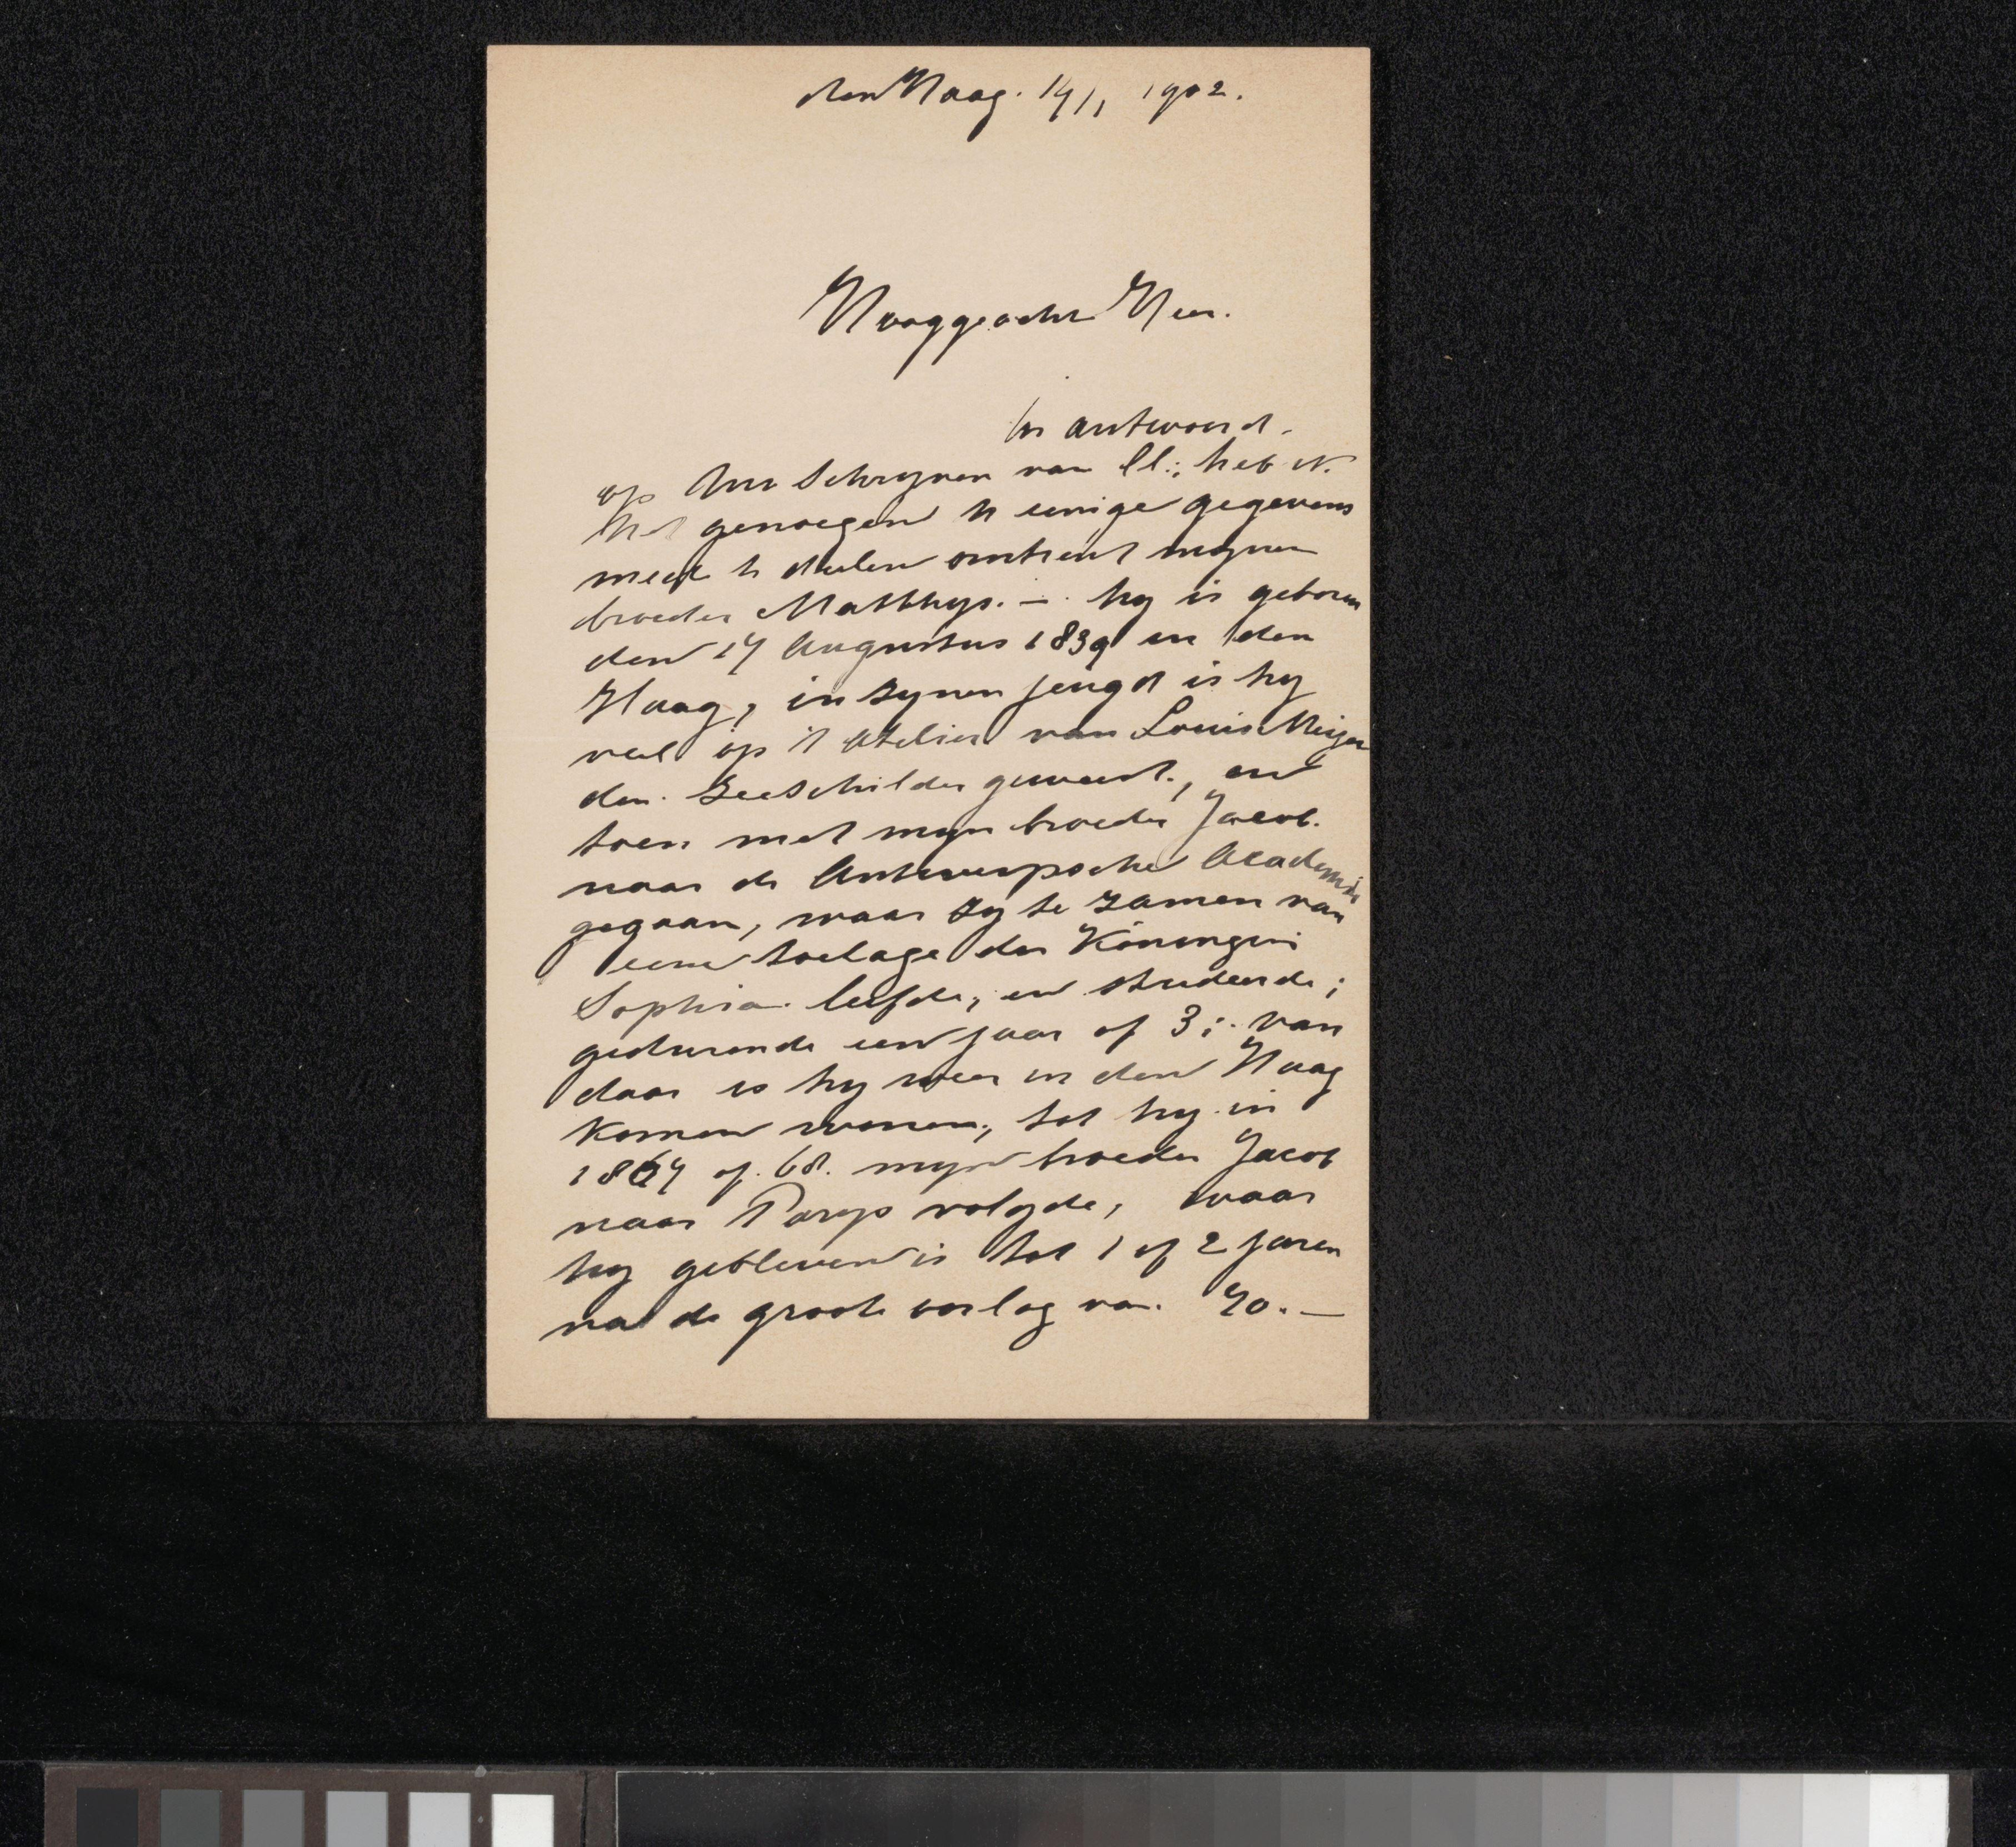 den Haag. 14/1 1902.
Hooggeachte Heer.
In antwoord.
op Uw schryven van ll:, heb ik
het genoegen U eenige gegevens
mede te deelen omtrent mynen
broeder Matthys. – hy is geboren
den 17 Augustus 1839 in den
Haag, in zynen jeugd is hy
veel op 't Atelier van Louis Meijer
den Zeeschilder geweest, en
toen met myn broeder Jacob.
naar de Antwerpsche Academie
gegaan, waar zy te zamen van
eene toelage der Koningin
Sophia leefde, en studeerde;
gedurende een jaar of 3;. van
daar is hy weer in den Haag
komen wonen, tot hy in
1867 of. 68. myn broeder Jacob
naar Parys volgde, waar
hy gebleven is tot 1 of 2 jaren
na de groote oorlog van. 70. –